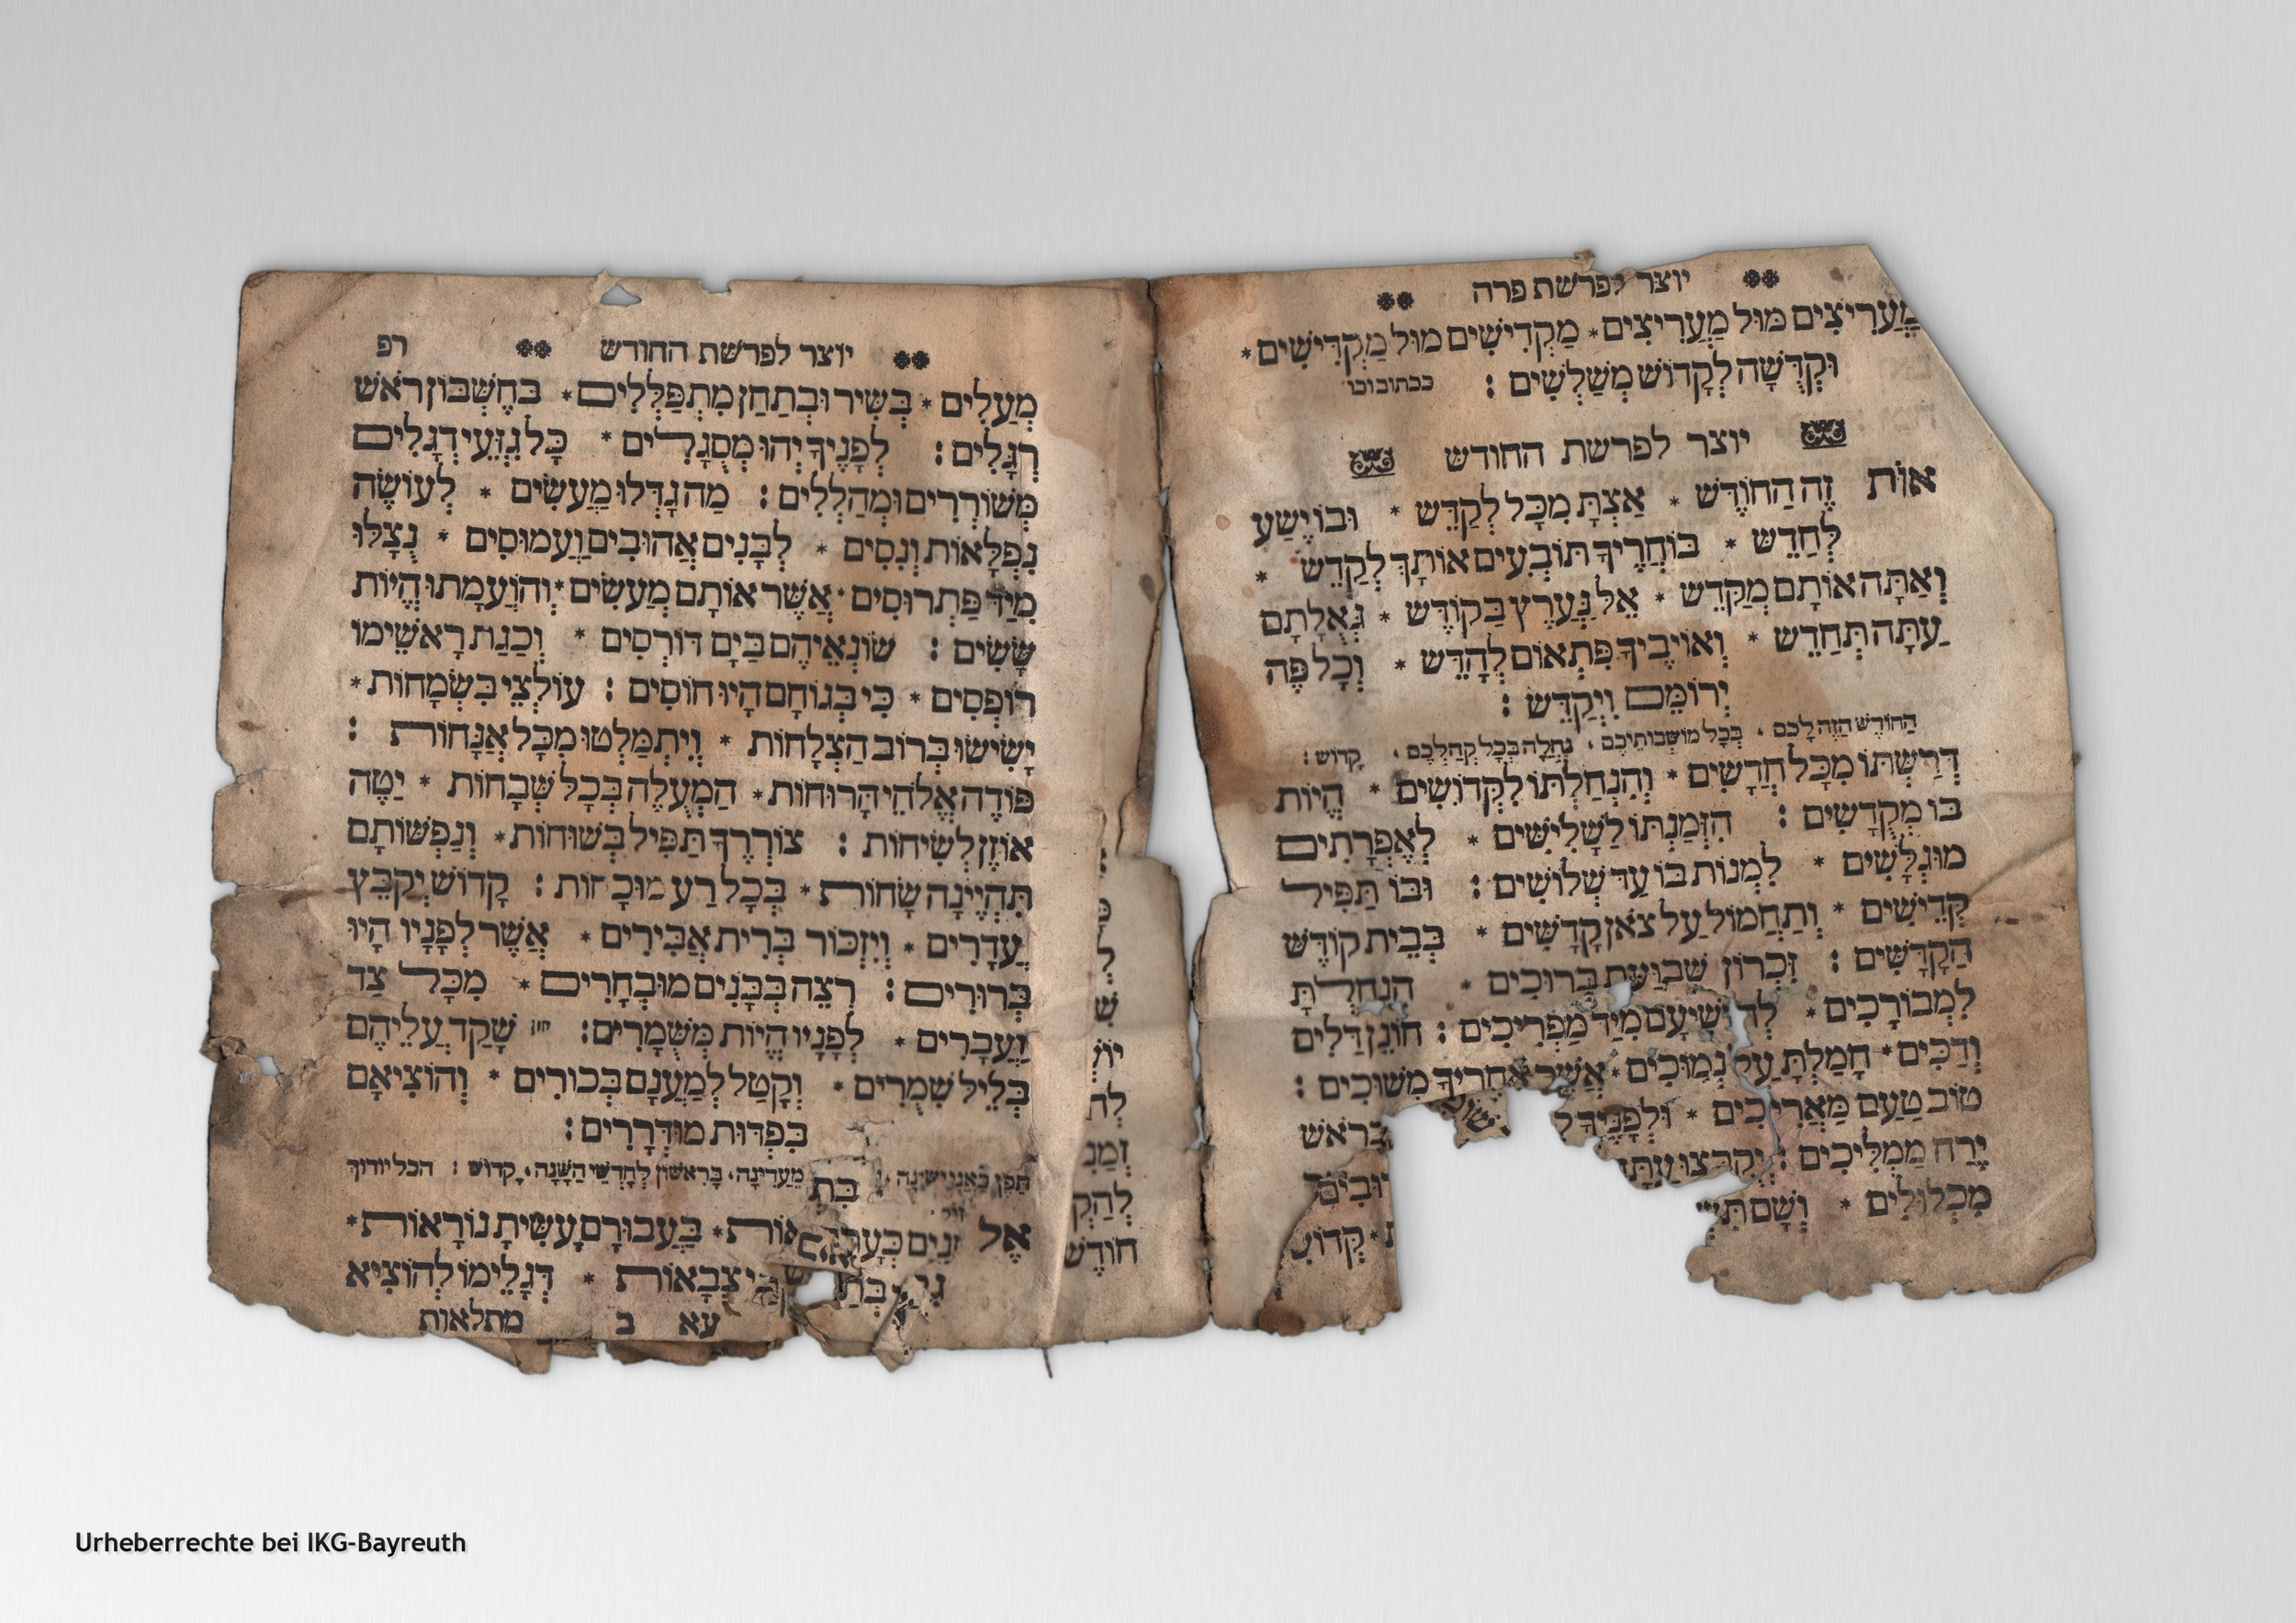 יוצר לפרשת פרה
מַעֲרִיצִים מוּל מַעֲרִיצִים * מַקְדִישִׁים מוּל מַקְדִּישִׁים *
וּקְדֻשָּׁה לְקָדוֹשׁ מְשַׁלְּשִׁים : ככתוב וכו
יוצר לפרשת החודש
אוֹת זֶה הַחוֹדֶשׁ * אַצְתָּ מִכָּל לְקַדֵּשׁ * וּבוֹ יֶשַׁע
לְחַדֵּשׁ * בּוֹחֲרֶיךָ תּוֹבְעִים אוֹתָךְ לְקַדֵּשׁ *
וְאַתָּה אוֹתָם מְקַדֵּשׁ * אֵל נַעֲרָץ בַּקּוֹדֶשׁ * גְּאֻלָּתָם
עַתָּה תְּחַדֵּשׁ * וְאוֹיְבֶיךָ פִּתְאוֹם לְהָדֵשׁ * וְכָל פֶּה
יְרוֹמֵם וְיַקְדֵּשׁ :
הַחוֹדֶשׁ הַזֶּה לָכֶם . בְּכָל מוֹשְׁבוֹתֵיכֶם . נַחֲלָה בְּכָל קְהַלְכֶם . קָדוֹשׁ :
דְּרַשְׁתּוֹ מִכָּל חֳדָשִׁים * וְהִנְחַלְתּוֹ לִקְדוֹשִׁים * הֱיוֹת
בּוֹ מְקֻדָּשִׁים : הִזְמַנְתּוֹ לְשָׁלִישִׁים * לְאֶפְרָתִים
מוּגְלָשִׁים * לִמְנוֹת בּוֹ עַד שְׁלוֹשִׁים : וּבוֹ תַּפִּיל
קְדֵישִׁים * וְתַחֲמוֹל עַל צֹאן קָדָשִׁים * בְּבֵית קוֹדֶשׁ
הַקֳּדָשִׁים : זִכְרוֹן שְׁבוּעַת בְּרוּכִים * הִנְחַלְתָּ
לִמְבוֹרָכִים * לְהוֹשִׁיעָם מִיַּד מַפְרִיכִים : חוֹנֵן דַּלִּים
וְדַכִּים * חָמַלְתָּ עַל נְמוּכִים * אֲשֶׁר אַחֲרֶיךָ מְשׁוּכִים :
טוֹב טַעַם מַאֲרִיכִים * וּלְפָנֶיךָ בְּרֹאשׁ
יֶרַח מַמְלִיכִים : יְקֻבְּצוּ
מִכְלוּלִים * וְשָׁם
יוצר לפרשת החודש רפ
מְעַלִּים * בְּשִׁיר וּבְתַחַן מִתְפַּלְּלִים * בְּחֶשְׁבּוֹן רֹאשׁ
רְגָלִים : לְפָנֶיךָ יְהוּ מְסֻגָּלִים * כָּל גִּזְעֵי דְגָלִים
מְשׁוֹרְרִים וּמְהַלְלִים : מַה גָּדְלוּ מַעֲשִׂים * לְעוֹשֶׂה
נִפְלָאוֹת וְנִסִּים * לְבָנִים אֲהוּבִים וַעֲמוּסִים * נִצָּלוּ
מִיַּד פַּתְרוּסִים * אֲשֶׁר אוֹתָם מְעַשִּׂים * וְהוֹעֲמָתוּ הֱיוֹת
שָׁשִׂים : שׂוֹנְאֵיהֶם בַּיָּם דּוֹרְסִים * וְכַנַּת רָאשֵׁימוֹ
רוֹפְסִים * כִּי בְנוֹחָם הָיוּ חוֹסִים : עוֹלְצֵי בִּשְׂמָחוֹת *
יָשִׂישׂוּ בְּרוֹב הַצְלָחוֹת * וְיִתְמַלְּטוּ מִכָּל אֲנָחוֹת :
פּוֹדֶה אֱלֹהֵי הָרוּחוֹת * הַמְעֻלֶּה בְּכָל שְׁבָחוֹת * יַטֶּה
אוֹזֶן לְשִׂיחוֹת : צוֹרְרֶיךָ תַּפִּיל בְּשׁוּחוֹת * וְנַפְשׁוֹתָם
תִּהְיֶינָה שָׁחוֹת * בְּכָל רַע מוּכָחוֹת : קָדוֹשׁ יְקַבֵּץ
עֲדָרִים * וְיִזְכּוֹר בְּרִית אַבִּירִים * אֲשֶׁר לְפָנָיו הָיוּ
בְּרוּרִים : רְצֵה בְּבָנִים מוּבְחָרִים * מִכָּל צַד
וַעֲבָרִים * לְפָנָיו הֱיוֹת מְשֻׁמָּרִים : חזן שָׁקַד עֲלֵיהֶם
בְּלֵיל שִׁמֻּרִים * וְקָטַל לְמַעֲנָם בְּכוֹרִים * וְהוֹצִיאָם
בִּפְדוּת מוּדְרָרִים :
בָּרִאשׁוֹן לְחָדְשֵׁי הַשָּׁנָה . קָדוֹשׁ : הכל יודוך
אֵל * בַּעֲבוּרָם עָשִׂיתָ נוֹרָאוֹת *
צְבָאוֹת * דְּגָלֵימוֹ לְהוֹצִיא
עא ב מתלאות
לְ
שׁ
יוֹ
זְמַנ
לְהַקְ
חוֹדֶשׁ
Urheberrechte bei IKG-Bayreuth